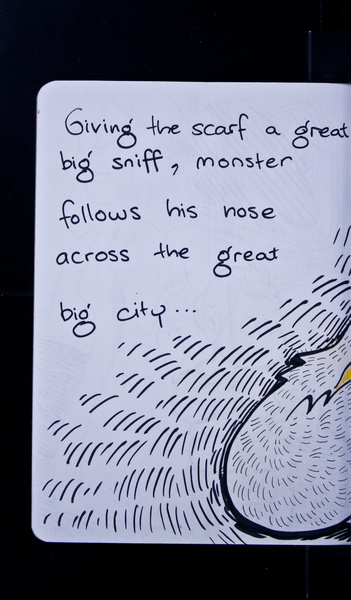 Giving the scarf a great
big sniff, monster
follows his nose
across the great
big city...